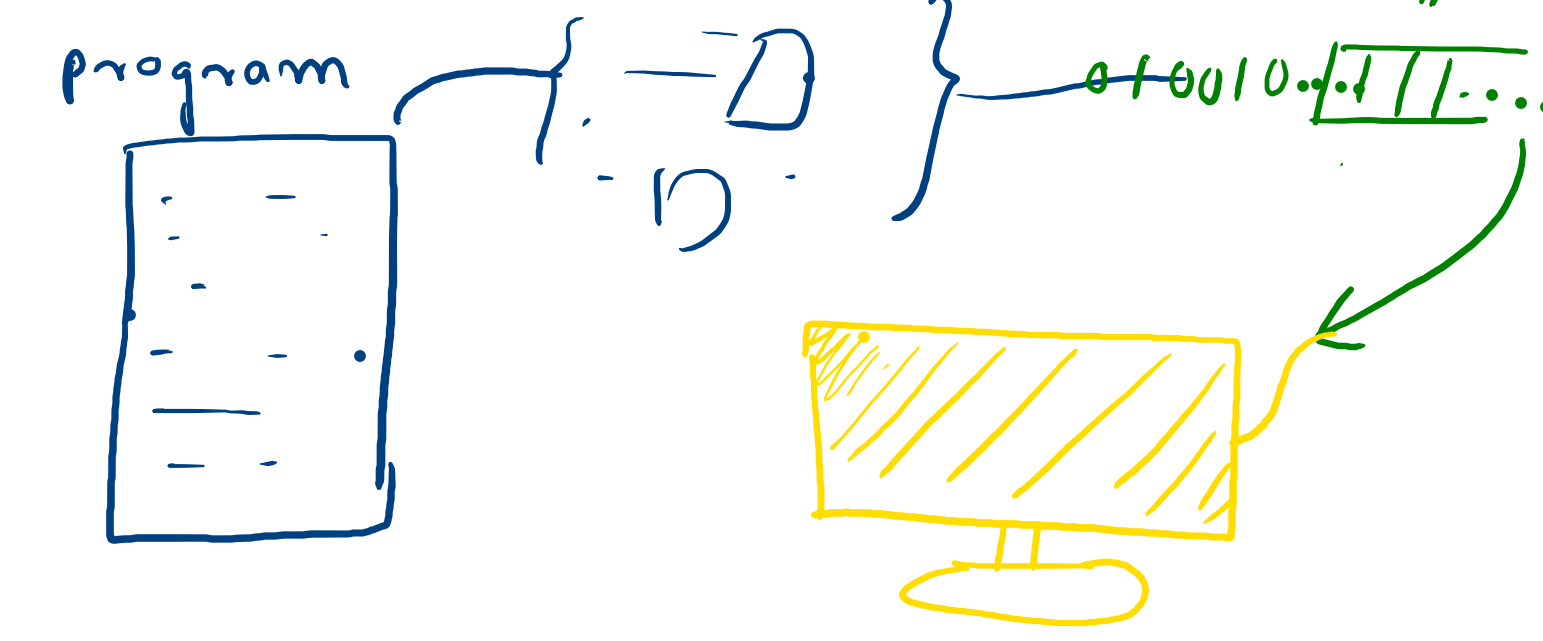 program
010010...